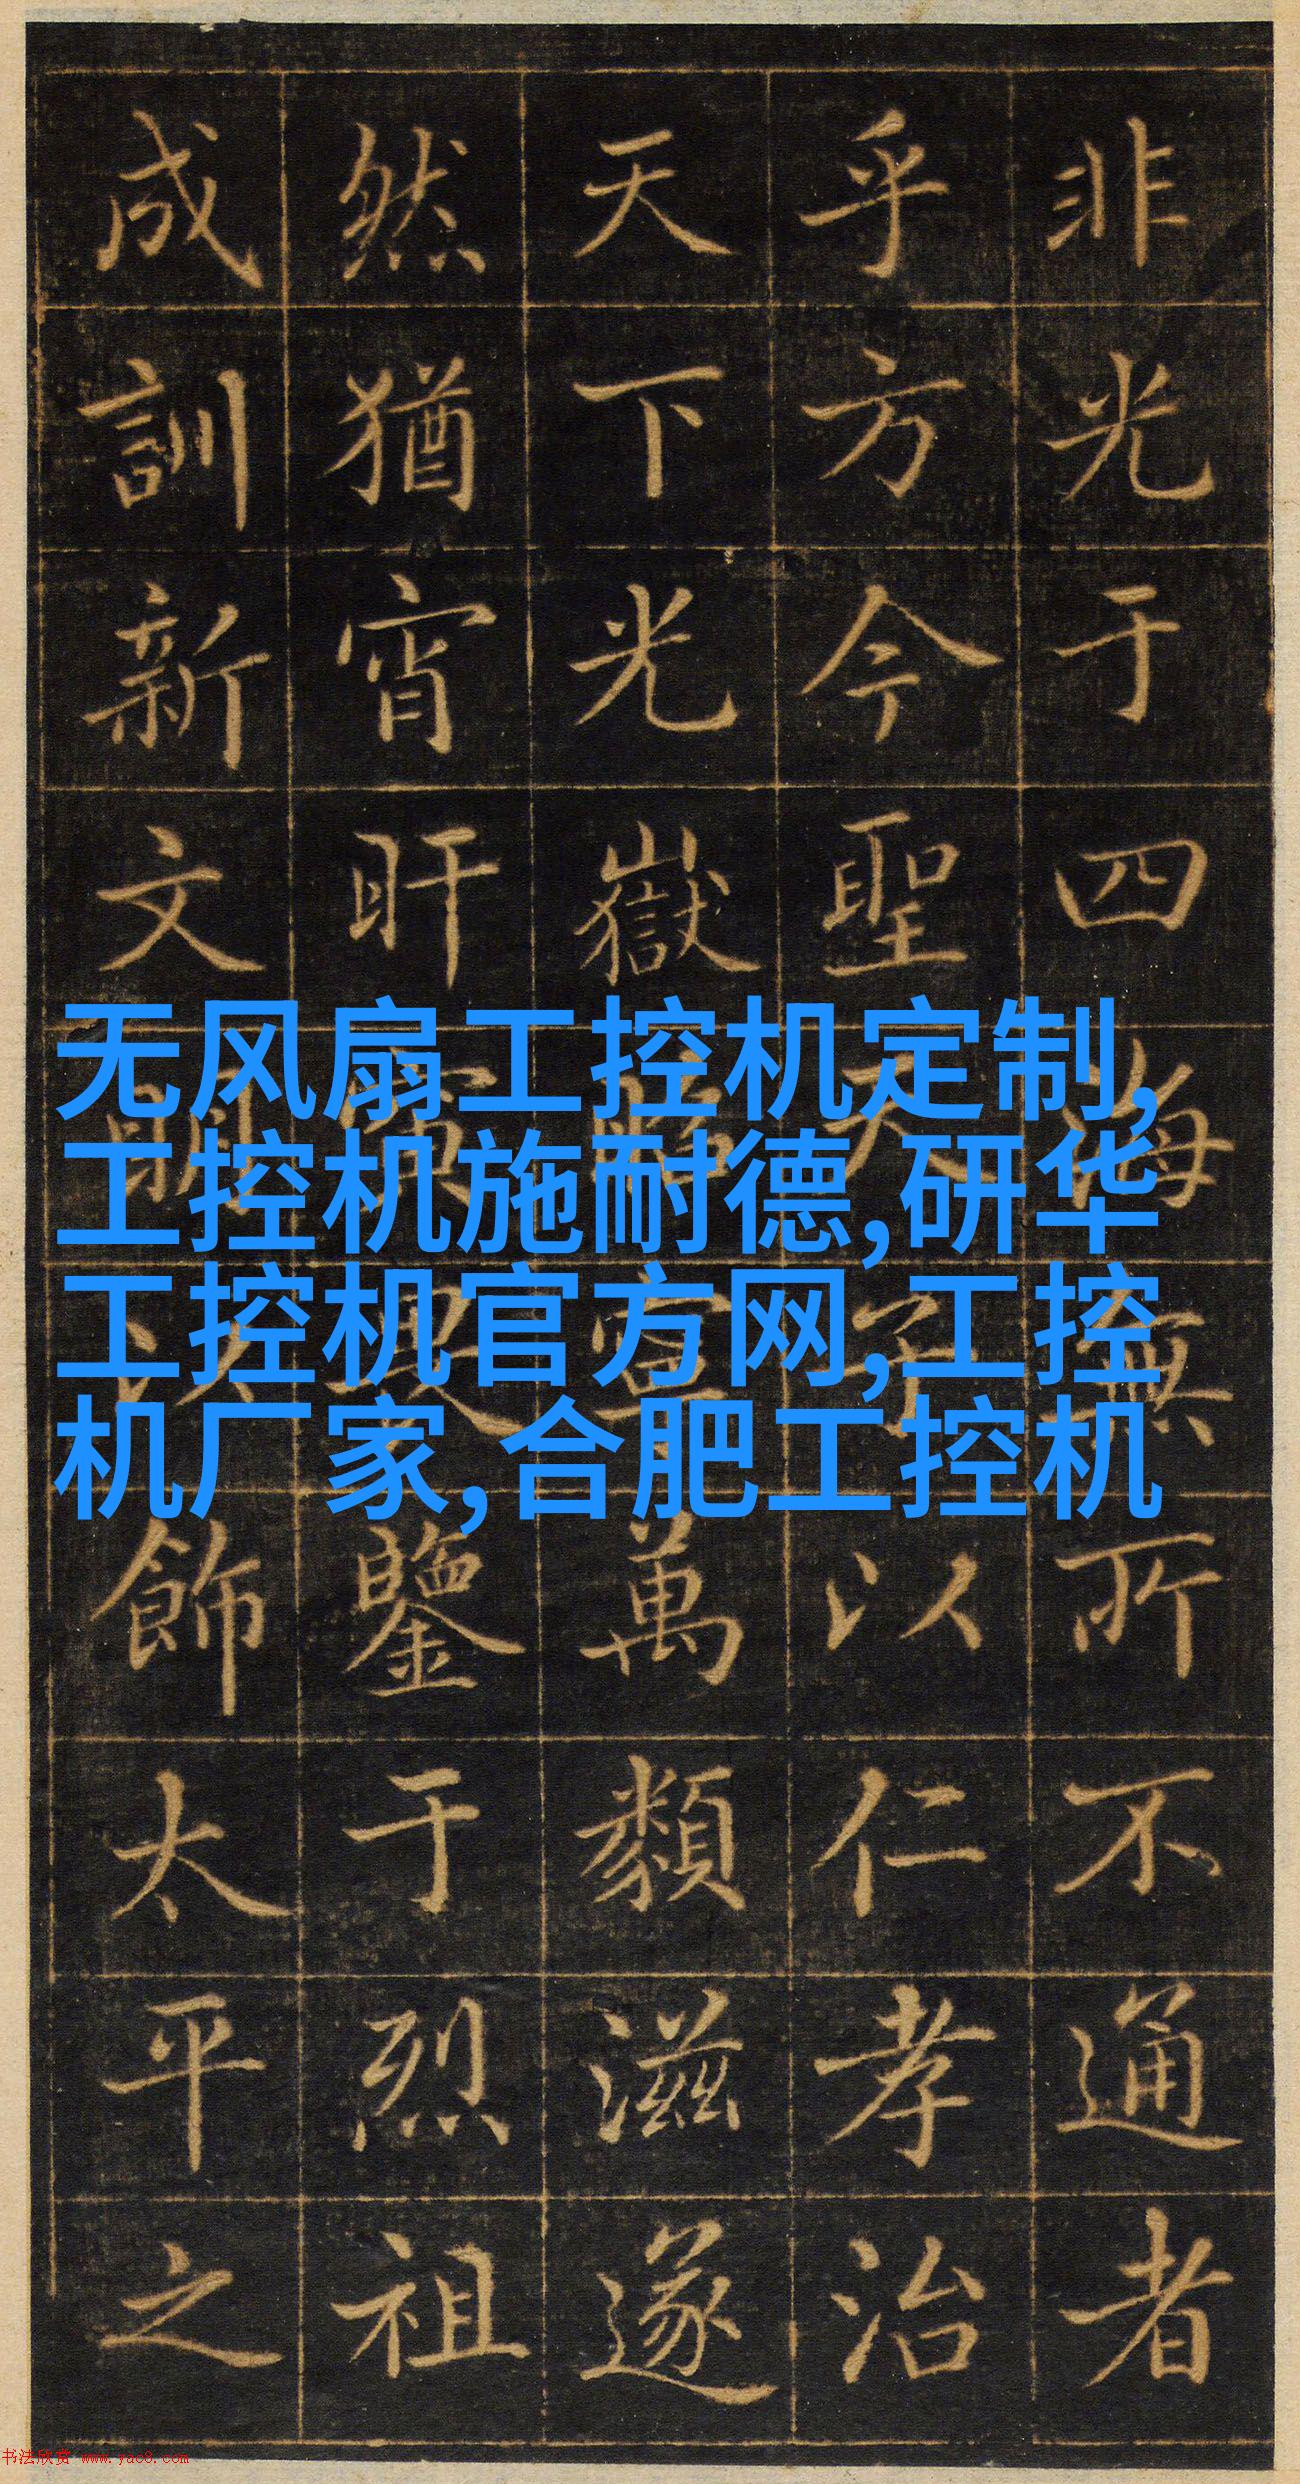 非光于四海無所不通者
乎方今聖天子以仁孝治
天下光嶽萬類滋遂
然猶宵旰寅畏鑒于烈祖
成訓新文明以飾太平之
无风扇工控机定制,
工控机施耐德,研华
工控机官方网,工控
机厂家,合肥工控机
书法欣赏 www.yac8.com